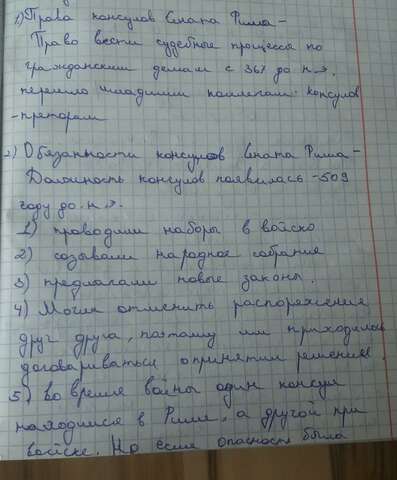 1) Права консулов Сната Рима -
Право вести судебные процессы по
гражданским делам с 367 до н.э.
перешло младшим коллегам консулов
- преторам
2) Обязанности консулов Сната Рима -
Должность консулов появилась - 509
году до н.э.
1) проводили наборы в войско
2) созывали народное собрание
3) предлагали новые законы.
4) Могли отменить распоряжения
друг друга, поэтому им приходилось
договариваться о принятии решения.
5) Во время войны один консул
находился в Риме, а другой при
войске. Но если опасность была